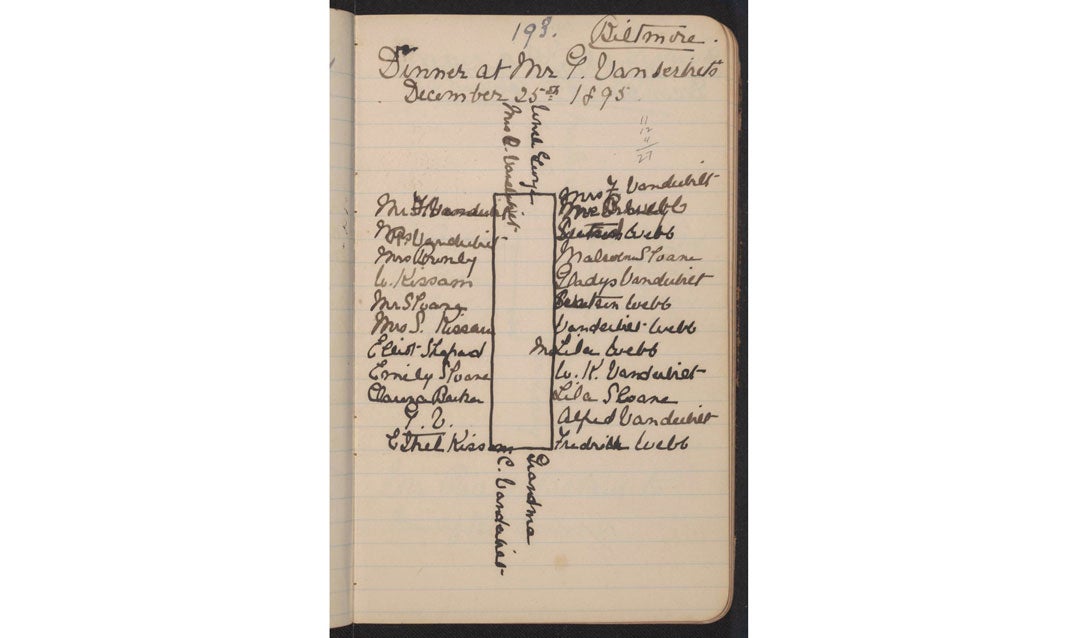 193.
Biltmore.
Dinner at Mr G. Vanderbilts
December 25th 1895
11
12
4
27
Uncle George
Mrs C. Vanderbilt
Mr F. Vanderbilt
Mrs Vanderbilt
Mrs
W. Kissam
Mr Sloane
Mrs S. Kissam
Elliot Shepard
Emily Sloane
Barker
G. V.
Ethel Kissam
Mrs F Vanderbilt
Webb
Webb
Malcolm Sloane
Gladys Vanderbilt
Webb
Vanderbilt Webb
Lila Webb
W. K. Vanderbilt
Lila Sloane
Alfred Vanderbilt
Fredrick Webb
Grandma
C. Vanderbilt